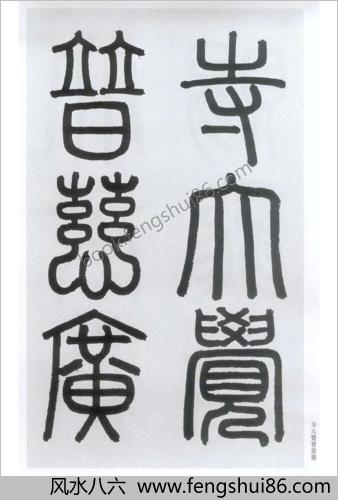 寺大覺
普慈廣
寺大覺普慈廣
book.fengshui86.com
风水八六 www.fengshui86.com